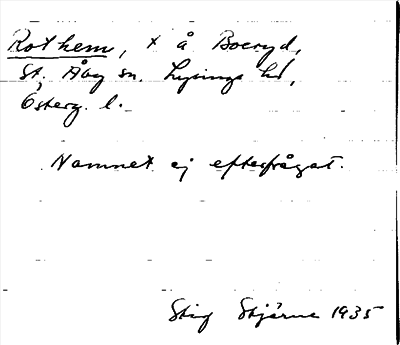 Rothem, x å Boeryd,
St. Åby sn. Lysings hd,
Österg. l.
Namnet ej efterfrågat.
Stig Stjärne 1935